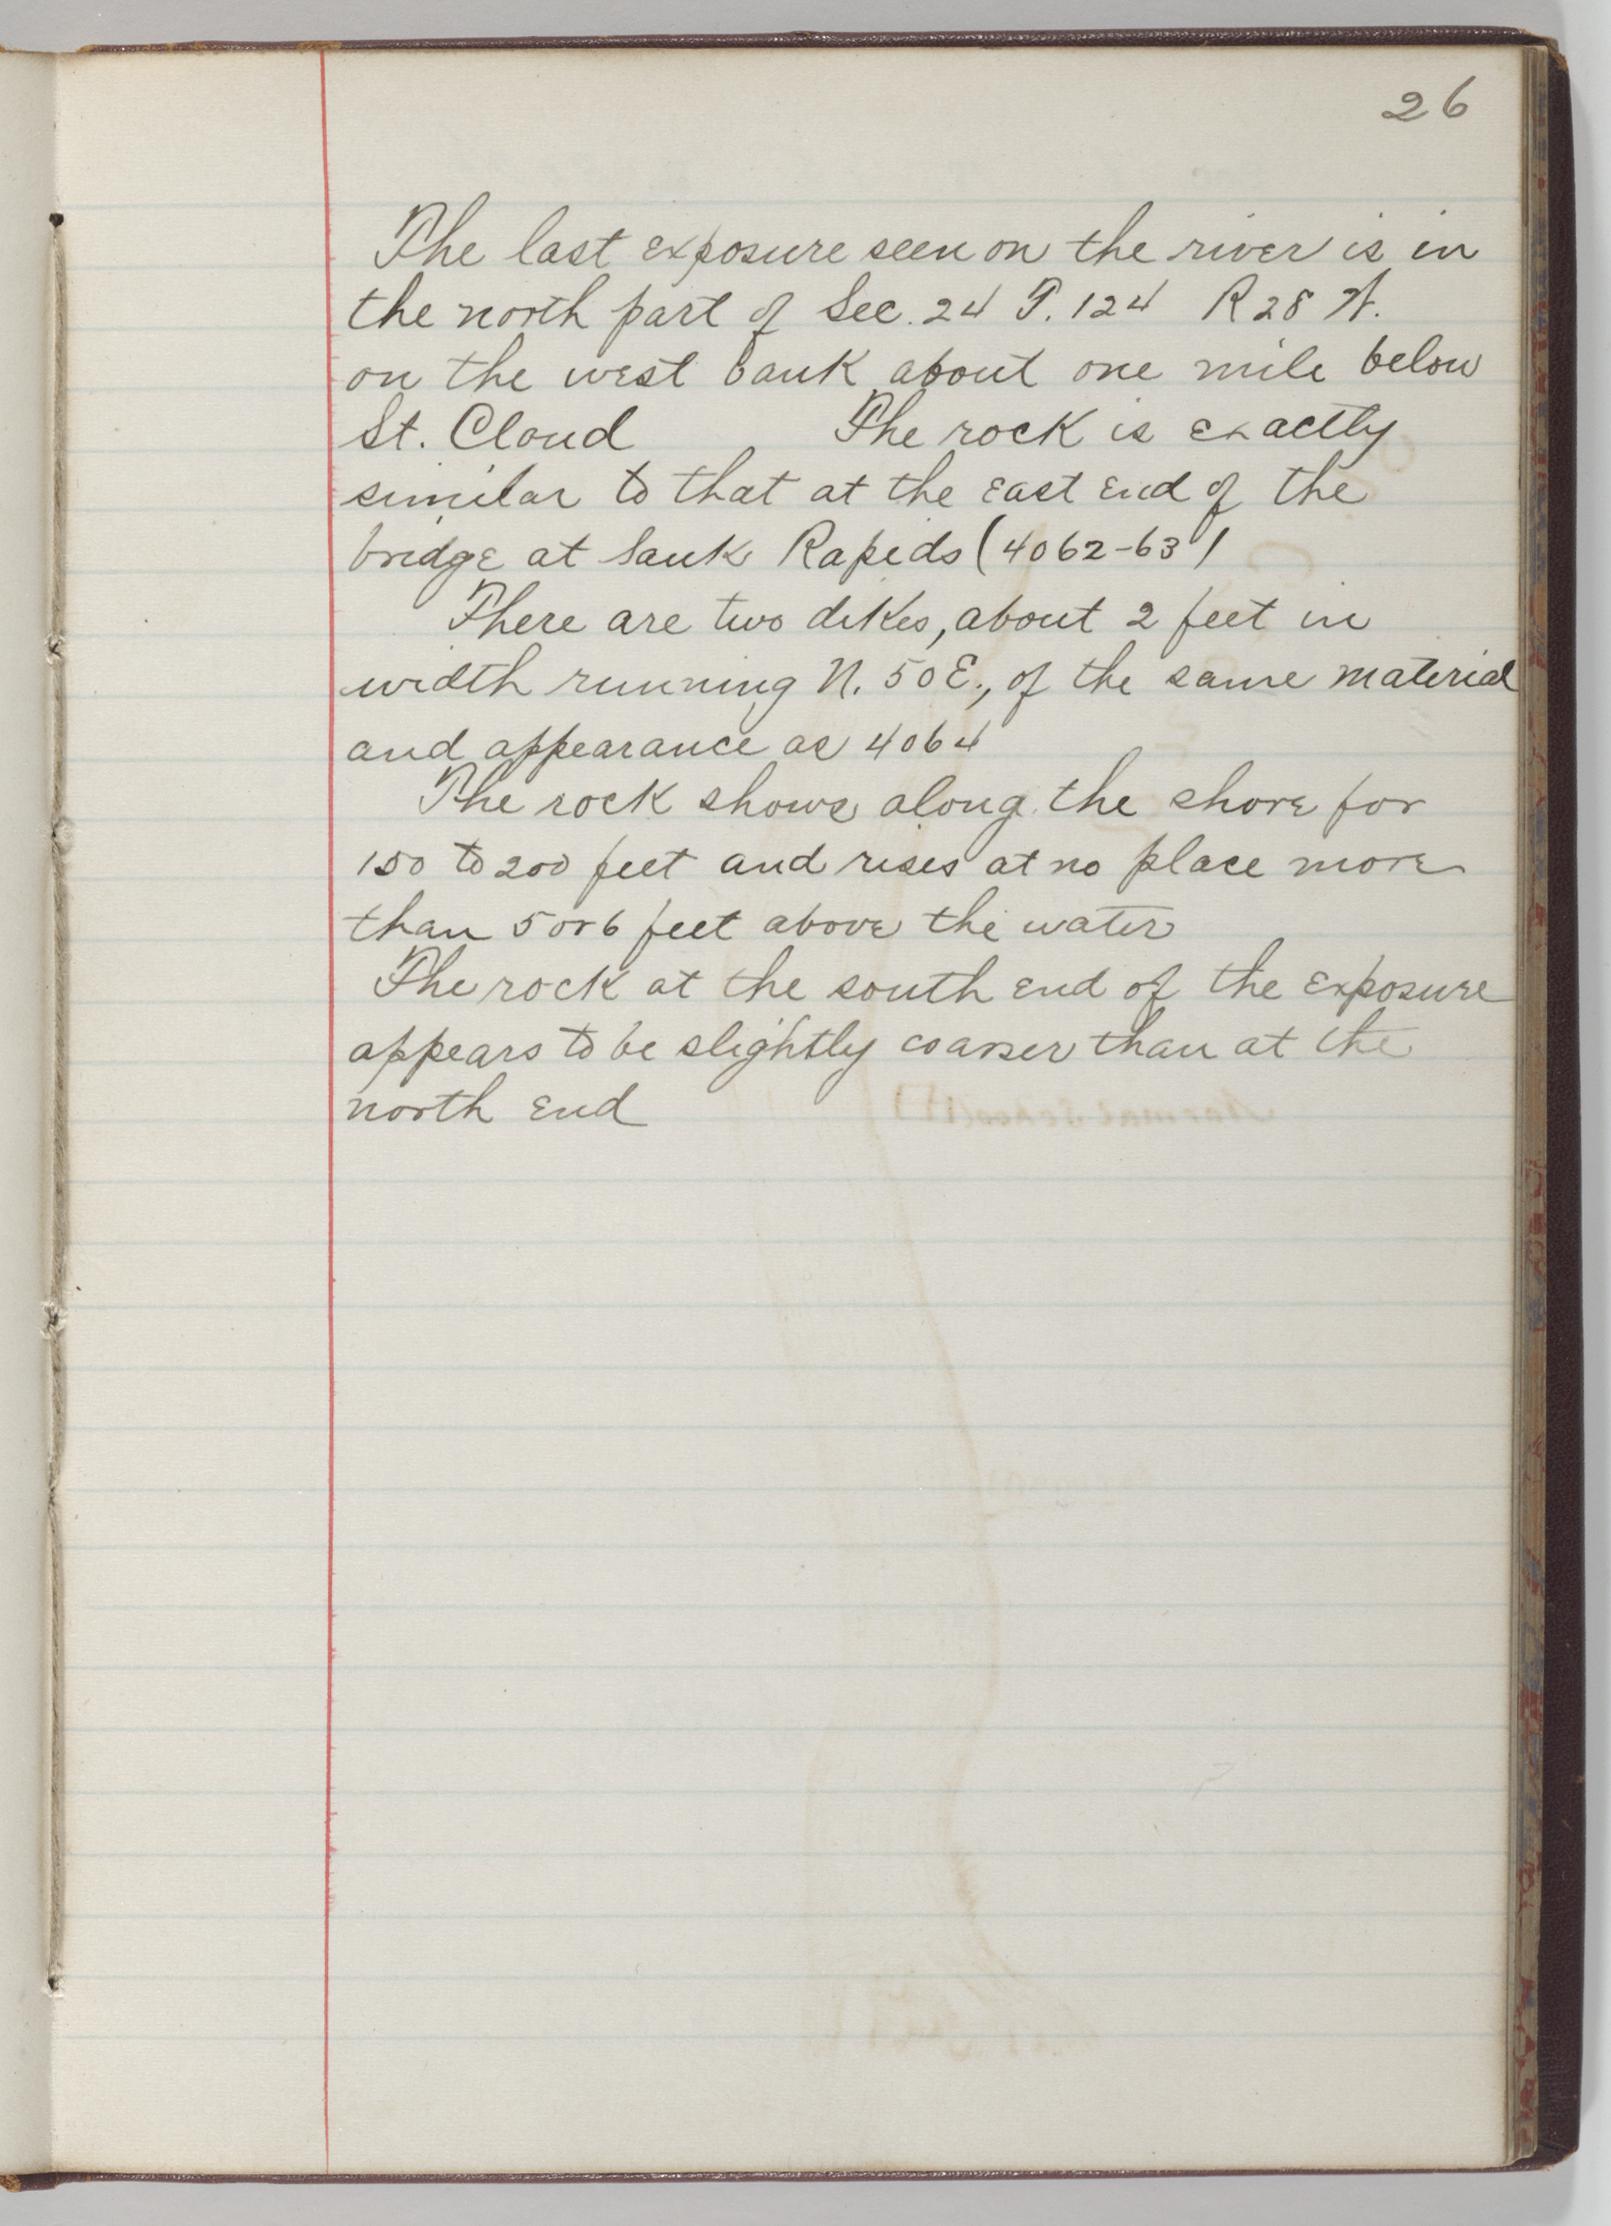 26
The last exposure seen on the river is in
the north part of Sec. 24 T. 124 R 28 W.
on the west bank about one mile below
St. Cloud The rock is exactly
similar to that at the east end of the
bridge at Sauk Rapids (4062-63)
There are two dikes, about 2 feet in
width running N. 50 E., of the same material
and appearance as 4064
The rock shows along the shore for
150 to 200 feet and rises at no place more
than 5 or 6 feet above the water
The rock at the south end of the exposure
appears to be slightly coarser than at the
north end